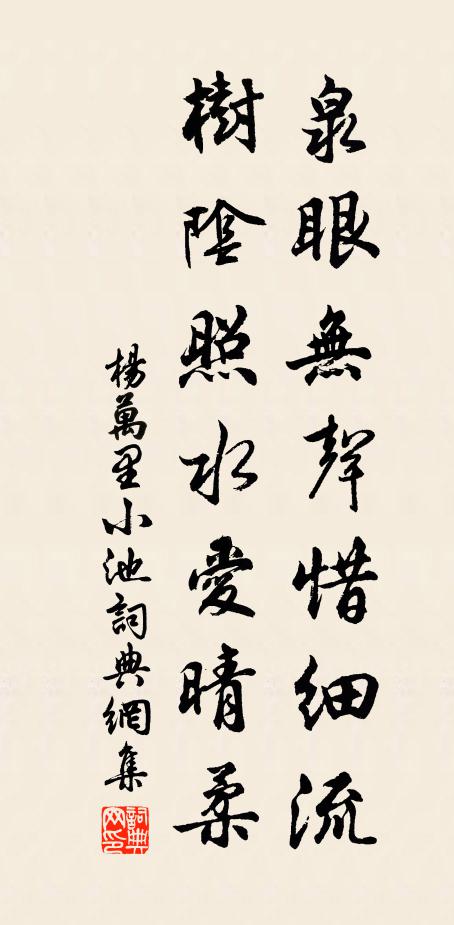 泉眼無聲惜細流
樹陰照水愛晴柔
楊萬里小池詞典網集
詞典網印